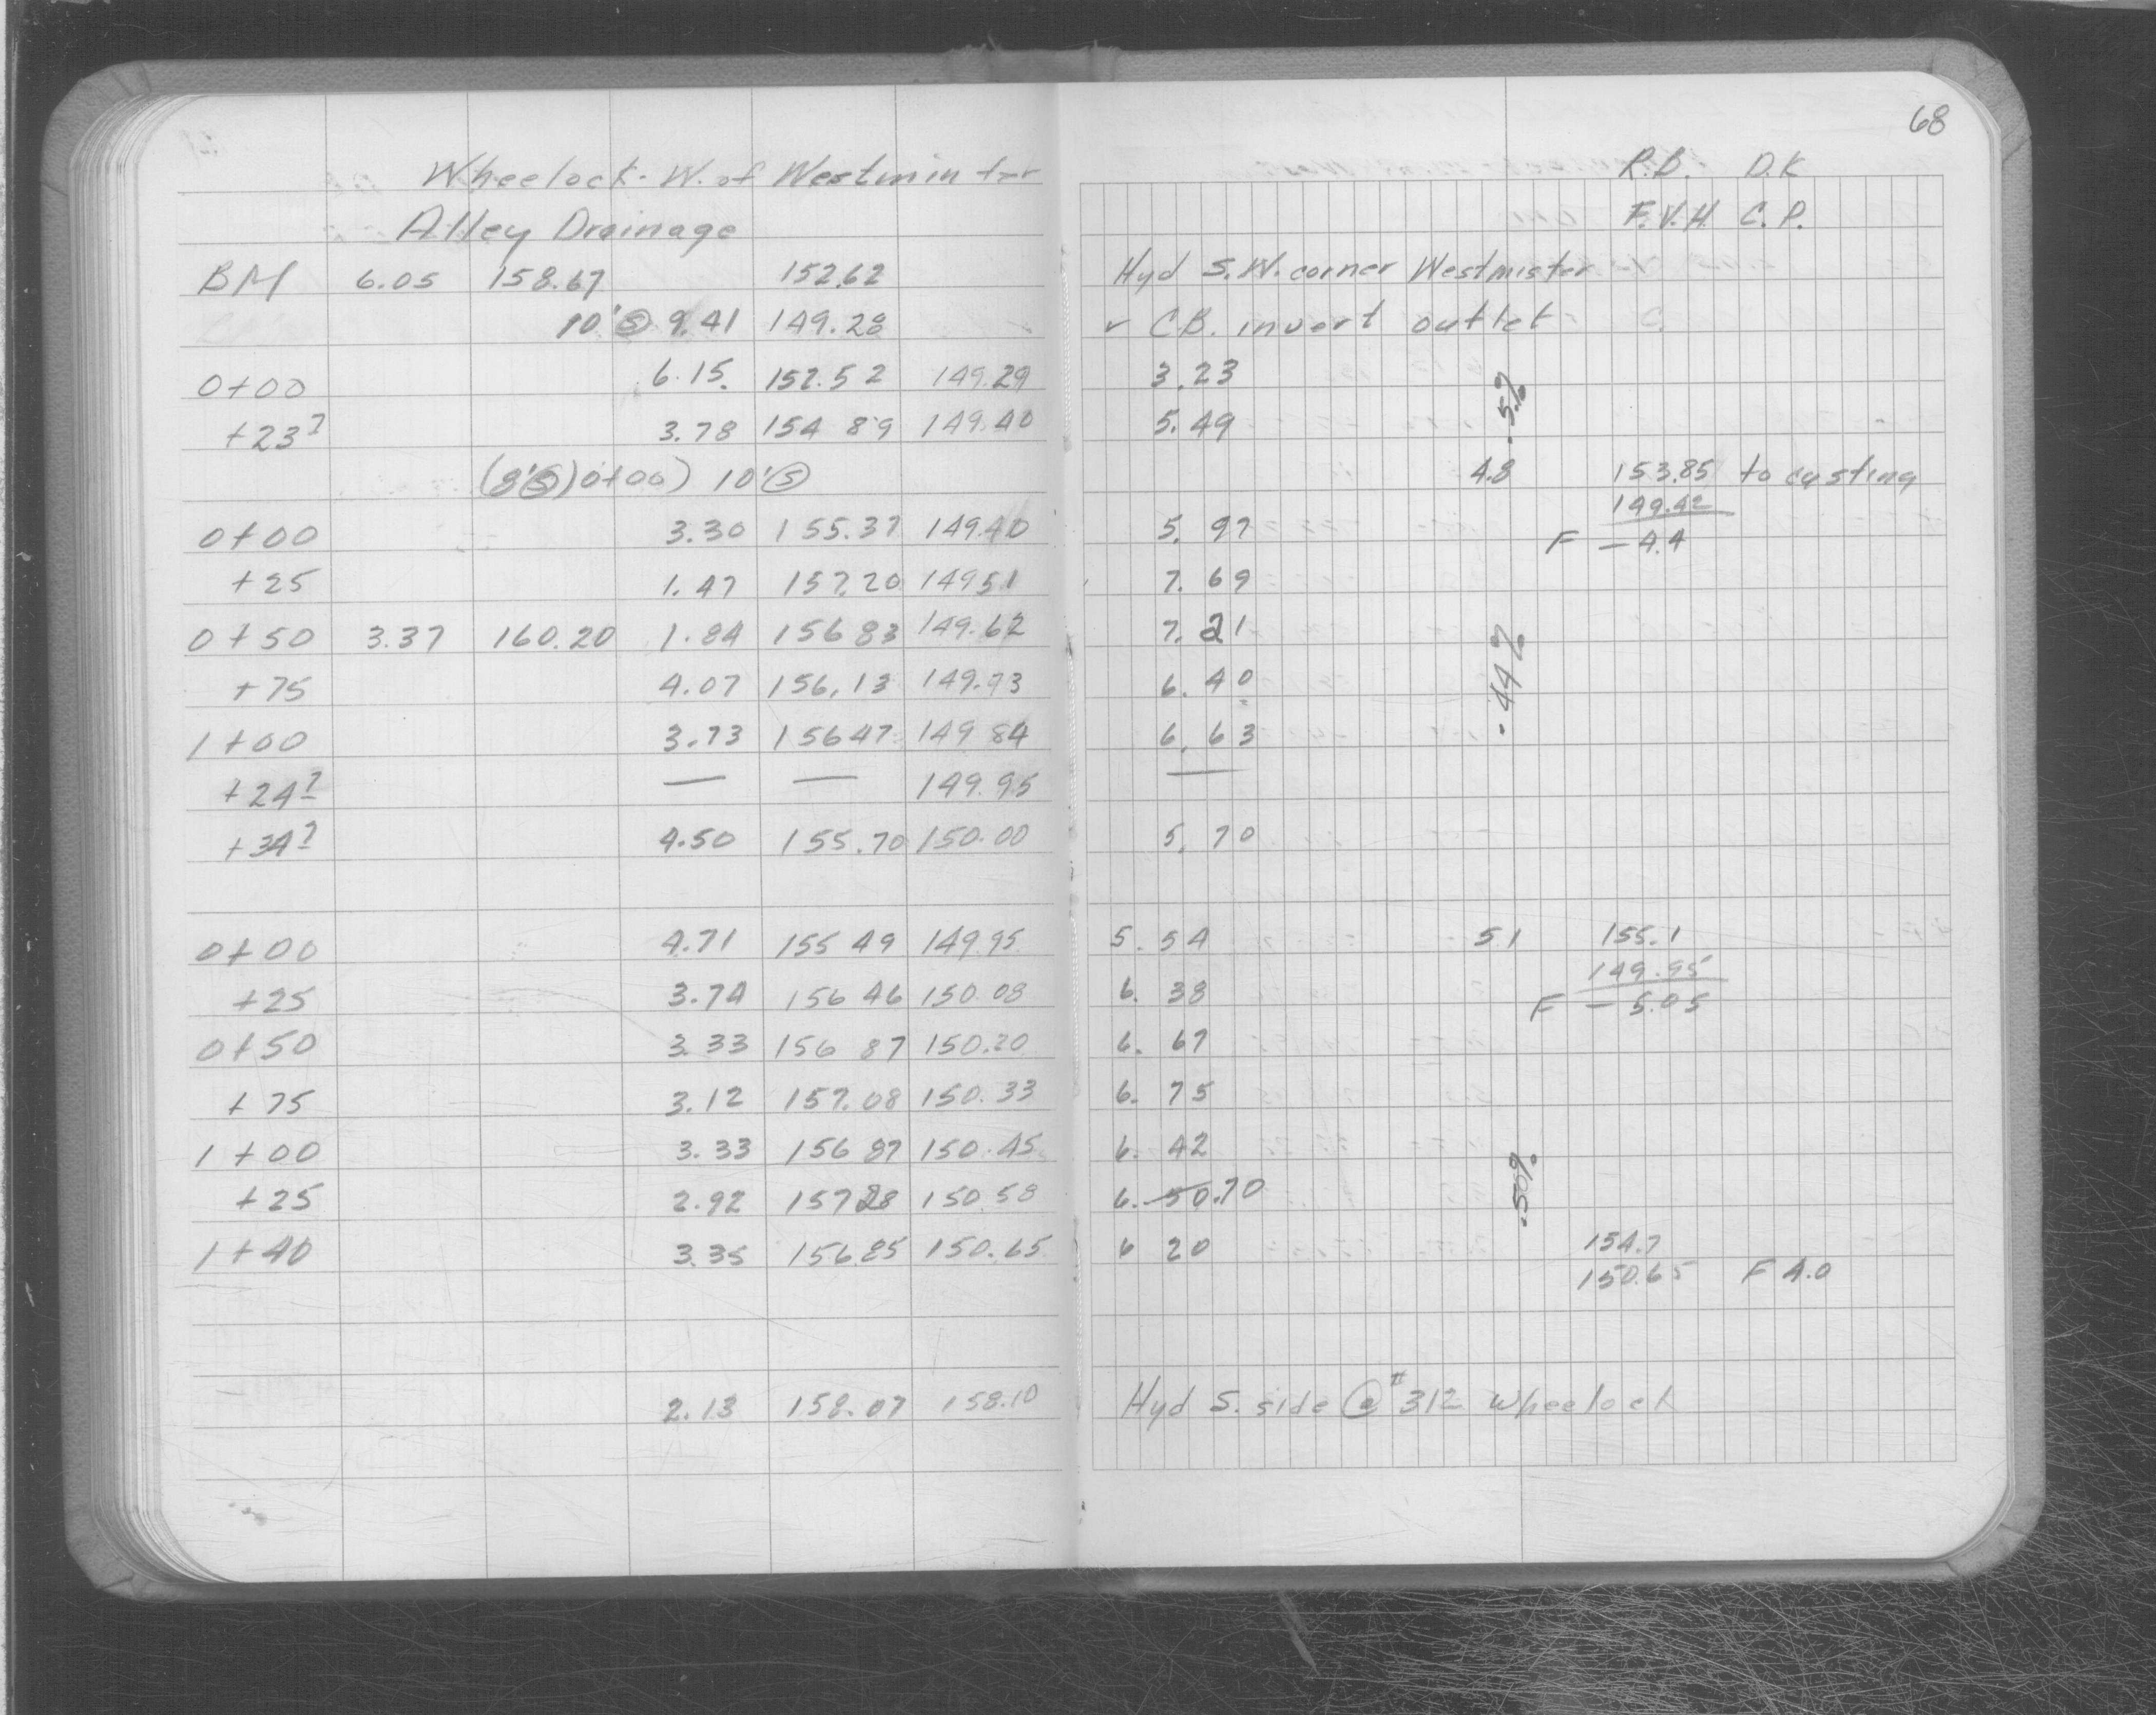 68
Wheelock - W. of Westminster R.B. D.K
Alley Drainage F.V.H. C.P.
BM 6.05 158.67 152.62 Hyd S.W. corner Westmister
10' Ⓢ 9.41 149.28 ✓ C.B. invert outlet
0+00 6.15 152.52 149.29 3.23
+23⁷ 3.78 154 89 149.40 5.49 .5%
(8'Ⓢ) 0+00) 10'Ⓢ 4.8 153.85 to casting
149.42
0+00 3.30 155.37 149.40 5.97 F - 4.4
+25 1.47 157.20 149 51 7.69
0+50 3.37 160.20 1.84 156 83 149.62 7.21
+75 4.07 156.13 149.73 6.40 .44%
1+00 3.73 156 47 149 84 6.63
+24⁷ — — 149.95 —
+34⁷ 4.50 155.70 150.00 5.70
0+00 4.71 155 49 149.95 5.54 51 155.1
149.95
+25 3.74 156 46 150.08 6.38 F - 5.05
0+50 3.33 156 87 150.20 6.67
+75 3.12 157.08 150.33 6.75
1+00 3.33 156 87 150.45 6.42
+25 2.92 157 28 150.58 6.50.70 .50%
1+40 3.35 156 85 150.65 6 20 154.7
150.65 F 4.0
2.13 158.07 158.10 Hyd S. side @ #312 Wheelock